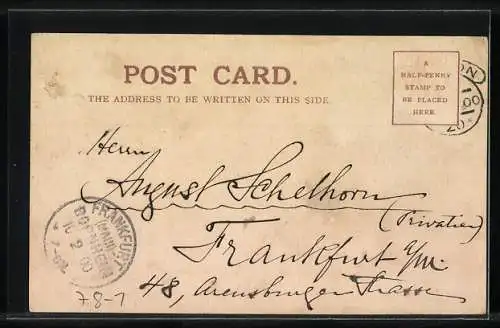 POST CARD.
THE ADDRESS TO BE WRITTEN ON THIS SIDE.
A
HALF-PENNY
STAMP TO
BE PLACED
HERE
Herrn
August Schelhorn
(Privatier)
Frankfurt a/M.
48, Arensburger Strasse
FRANKFURT
(MAIN)
BOCKENHEIM
7 8-9